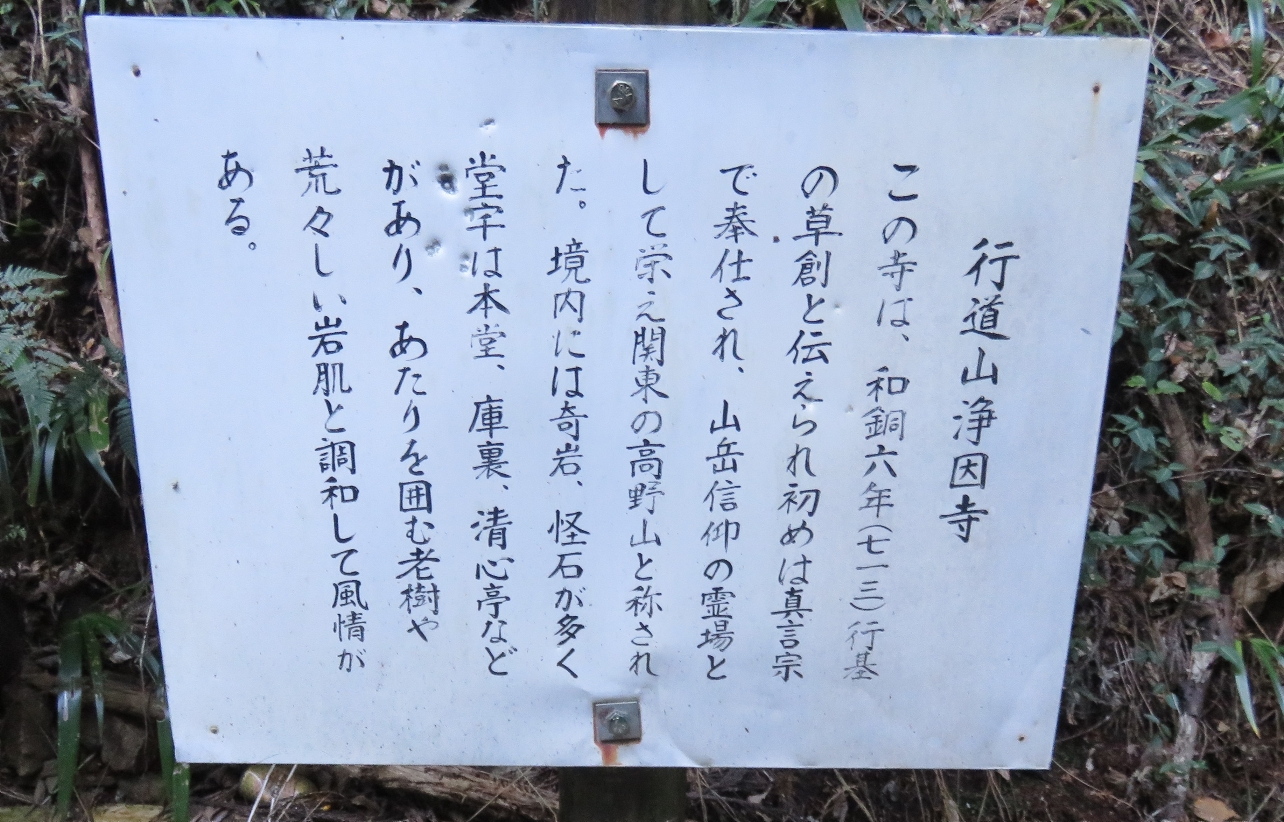 行道山浄因寺
この寺は、和銅六年(七一三)行基
の草創と伝えられ初めは真言宗
で奉仕され、山岳信仰の霊場と
して栄え関東の高野山と称され
た。境内には奇岩、怪石が多く
堂宇は本堂、庫裏、清心亭など
があり、あたりを囲む老樹や
荒々しい岩肌と調和して風情が
ある。